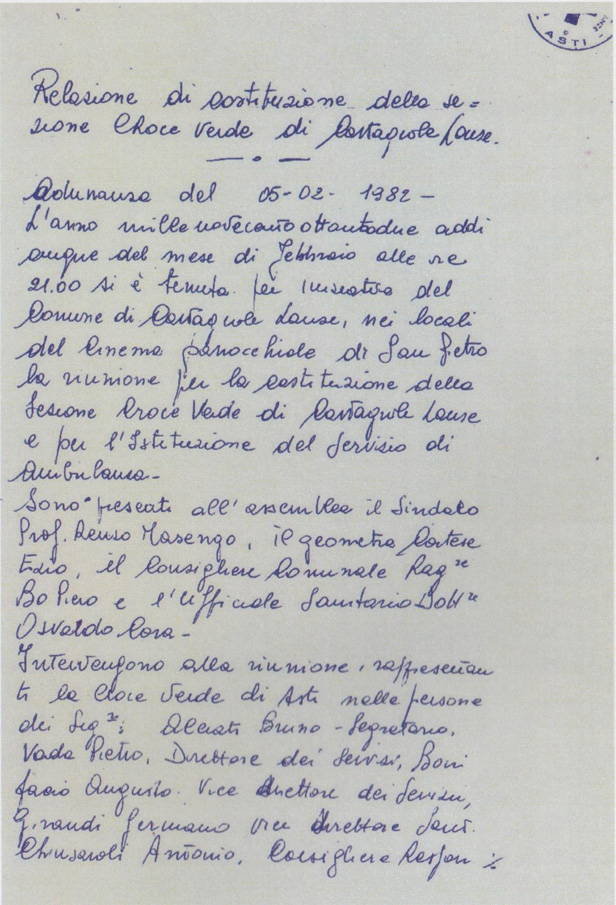 ASTI
Relazione di costituzione della se=
zione Croce Verde di Castagnole Lanze.
Adunanza del 05-02-1982-
L'anno millenovecentottantadue addì
cinque del mese di Febbraio alle ore
21.00 si è tenuta per iniziativa del
Comune di Castagnole Lanze, nei locali
del Cinema parrocchiale di San Pietro
la riunione per la costituzione della
Sezione Croce Verde di Castagnole Lanze
e per l'Istituzione del Servizio di
Ambulanza-
Sono presenti all'assemblea il Sindaco
Prof. Renzo Masengo, il geometra Cortese
Ezio, il Consigliere Comunale Rag.re
Bo Piero e l'Ufficiale Sanitario Dott.re
Osvaldo Cora-
Intervengono alla riunione, rappresentan
ti la Croce Verde di Asti nelle persone
dei Sig.ri: Bruno - Segretario,
Vada Pietro, Direttore dei Servizi, Boni
facio Augusto. Vice direttore dei Servizi,
Girandi Germano vice direttore Sant.
Antonio, Consigliere ./.